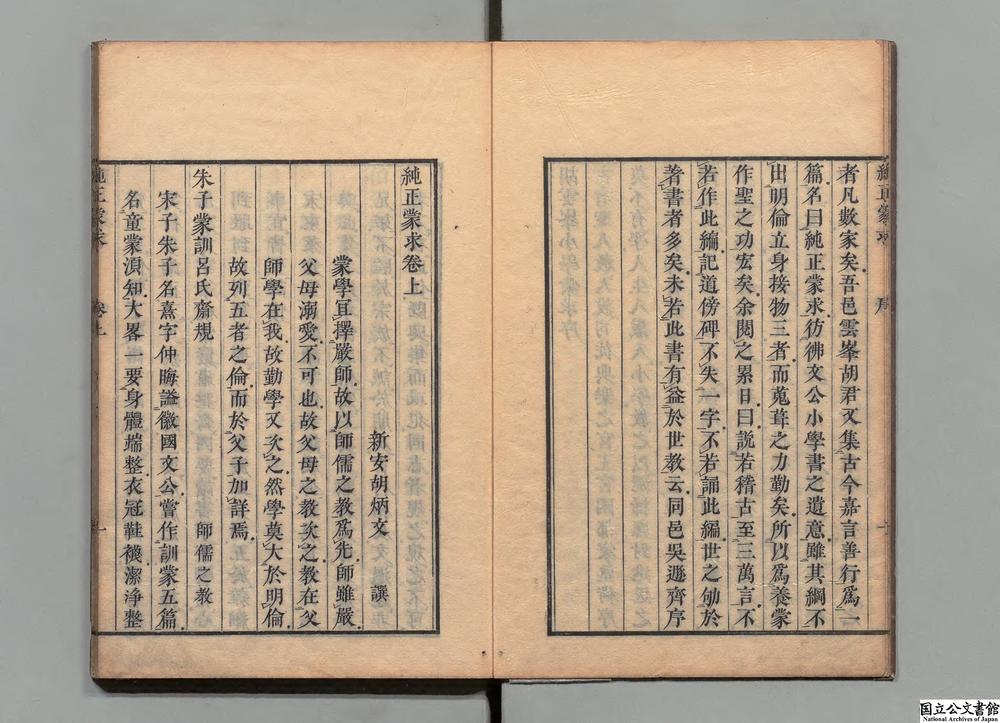 純正蒙求 序
者凡數家矣吾邑雲峯胡君又集古今嘉言善行爲一
篇名曰純正蒙求彷彿文公小學書之遺意雖其綱不
出明倫立身接物三者而蒐葺之力勤矣所以爲養蒙
作聖之功宏矣余閱之累日曰説若稽古至三萬言不
若作此編記道傍碑不失一字不若誦此編世之劬於
著書者多矣未若此書有益於世教云同邑吳遜齊序
純正蒙求卷上
新安胡炳文 譔
蒙學亙擇嚴師故以師儒之教爲先師雖嚴
父母溺愛不可也故父母之教次之教在父
師學在我故勤學又次之然學莫大於明倫
故列五者之倫而於父子加詳焉
朱子蒙訓呂氏齋規 師儒之教
宋子朱子名熹字仲晦謚徽國文公嘗作訓蒙五篇
名童蒙湏知大畧一要身體端整衣冠鞋襪潔淨整
純正蒙求 卷上
国立公文書館
National Archives of Japan